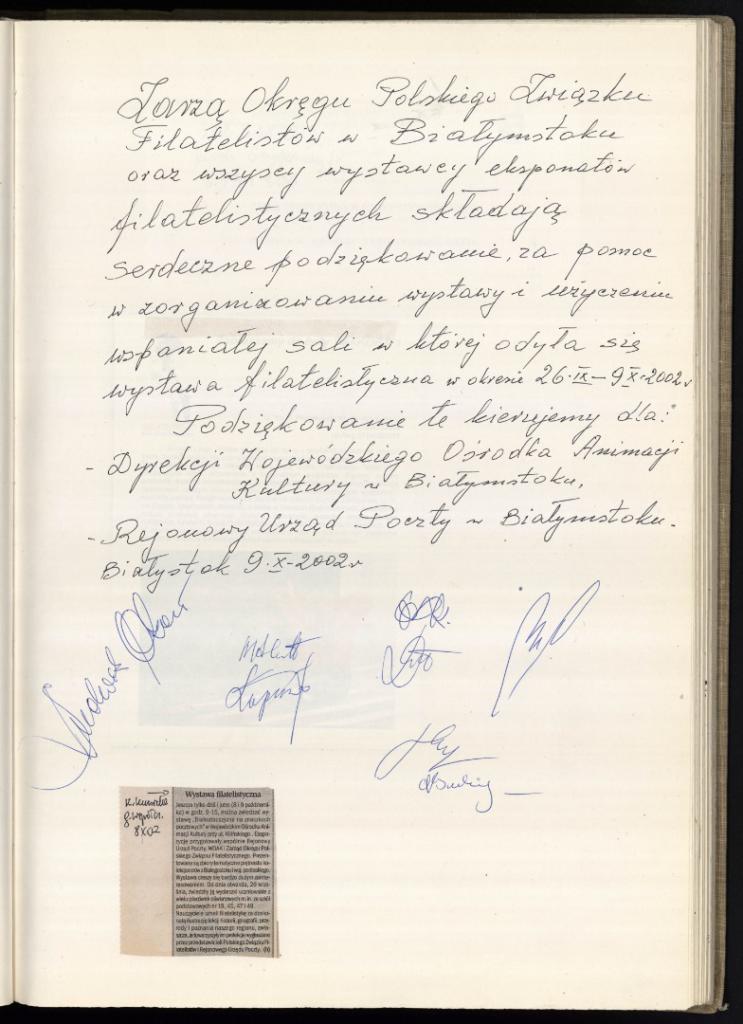 Zarzą Okręgu Polskiego Związku
Filatelistów w Białymstoku
oraz wszyscy wystawcy eksponatów
filatelistycznych składają
serdeczne podziękowanie, za pomoc
w zorganizowaniu wystawy i użyczeniu
wspaniałej sali w której odyła się
wystawa filatelistyczna w okresie 26.IX–9.X.2002r
Podziękowanie te kierujemy dla:
- Dyrekcji Wojewódzkiego Ośrodka Animacji
Kultury w Białymstoku,
- Rejonowy Urząd Poczty w Białymstoku.
Białystok 9.X-2002r
8 X 02
Wystawa filatelistyczna
Jeszcze tylko dziś i jutro (8 i 9 październi-
ka) w godz. 9-15, można zwiedzać wy-
stawę „Białostocczyzna na znaczkach
pocztowych" w Wojewódzkim Ośrodku Ani-
macji Kultury przy ul. Kilińskiego. Ekspo-
zycję przygotowały wspólnie Rejonowy
Urząd Poczty, WOAK i Zarząd Okręgu Pol-
skiego Związku Filatelistycznego. Prezen-
towane są zbiory tematyczne piętnastu ko-
lekcjonerów z Białegostoku i woj. podlaskiego.
Wystawa cieszy się bardzo dużym zainte-
resowaniem. Od dnia otwarcia, 26 wrze-
śnia, zwiedziły ją wycieczki uczniowskie z
wielu placówek oświatowych m.in. ze szkół
podstawowych nr 19, 45, 47 i 49.
Nauczyciele uznali filatelistykę za dosko-
nałą ilustrację lekcji historii, geografii, przy-
rody i poznania naszego regionu, zwła-
szcza, że towarzyszyły im prelekcje wygłaszane
przez przedstawicieli Polskiego Związku Fi-
latelistów i Rejonowego Urzędu Poczty. (h)